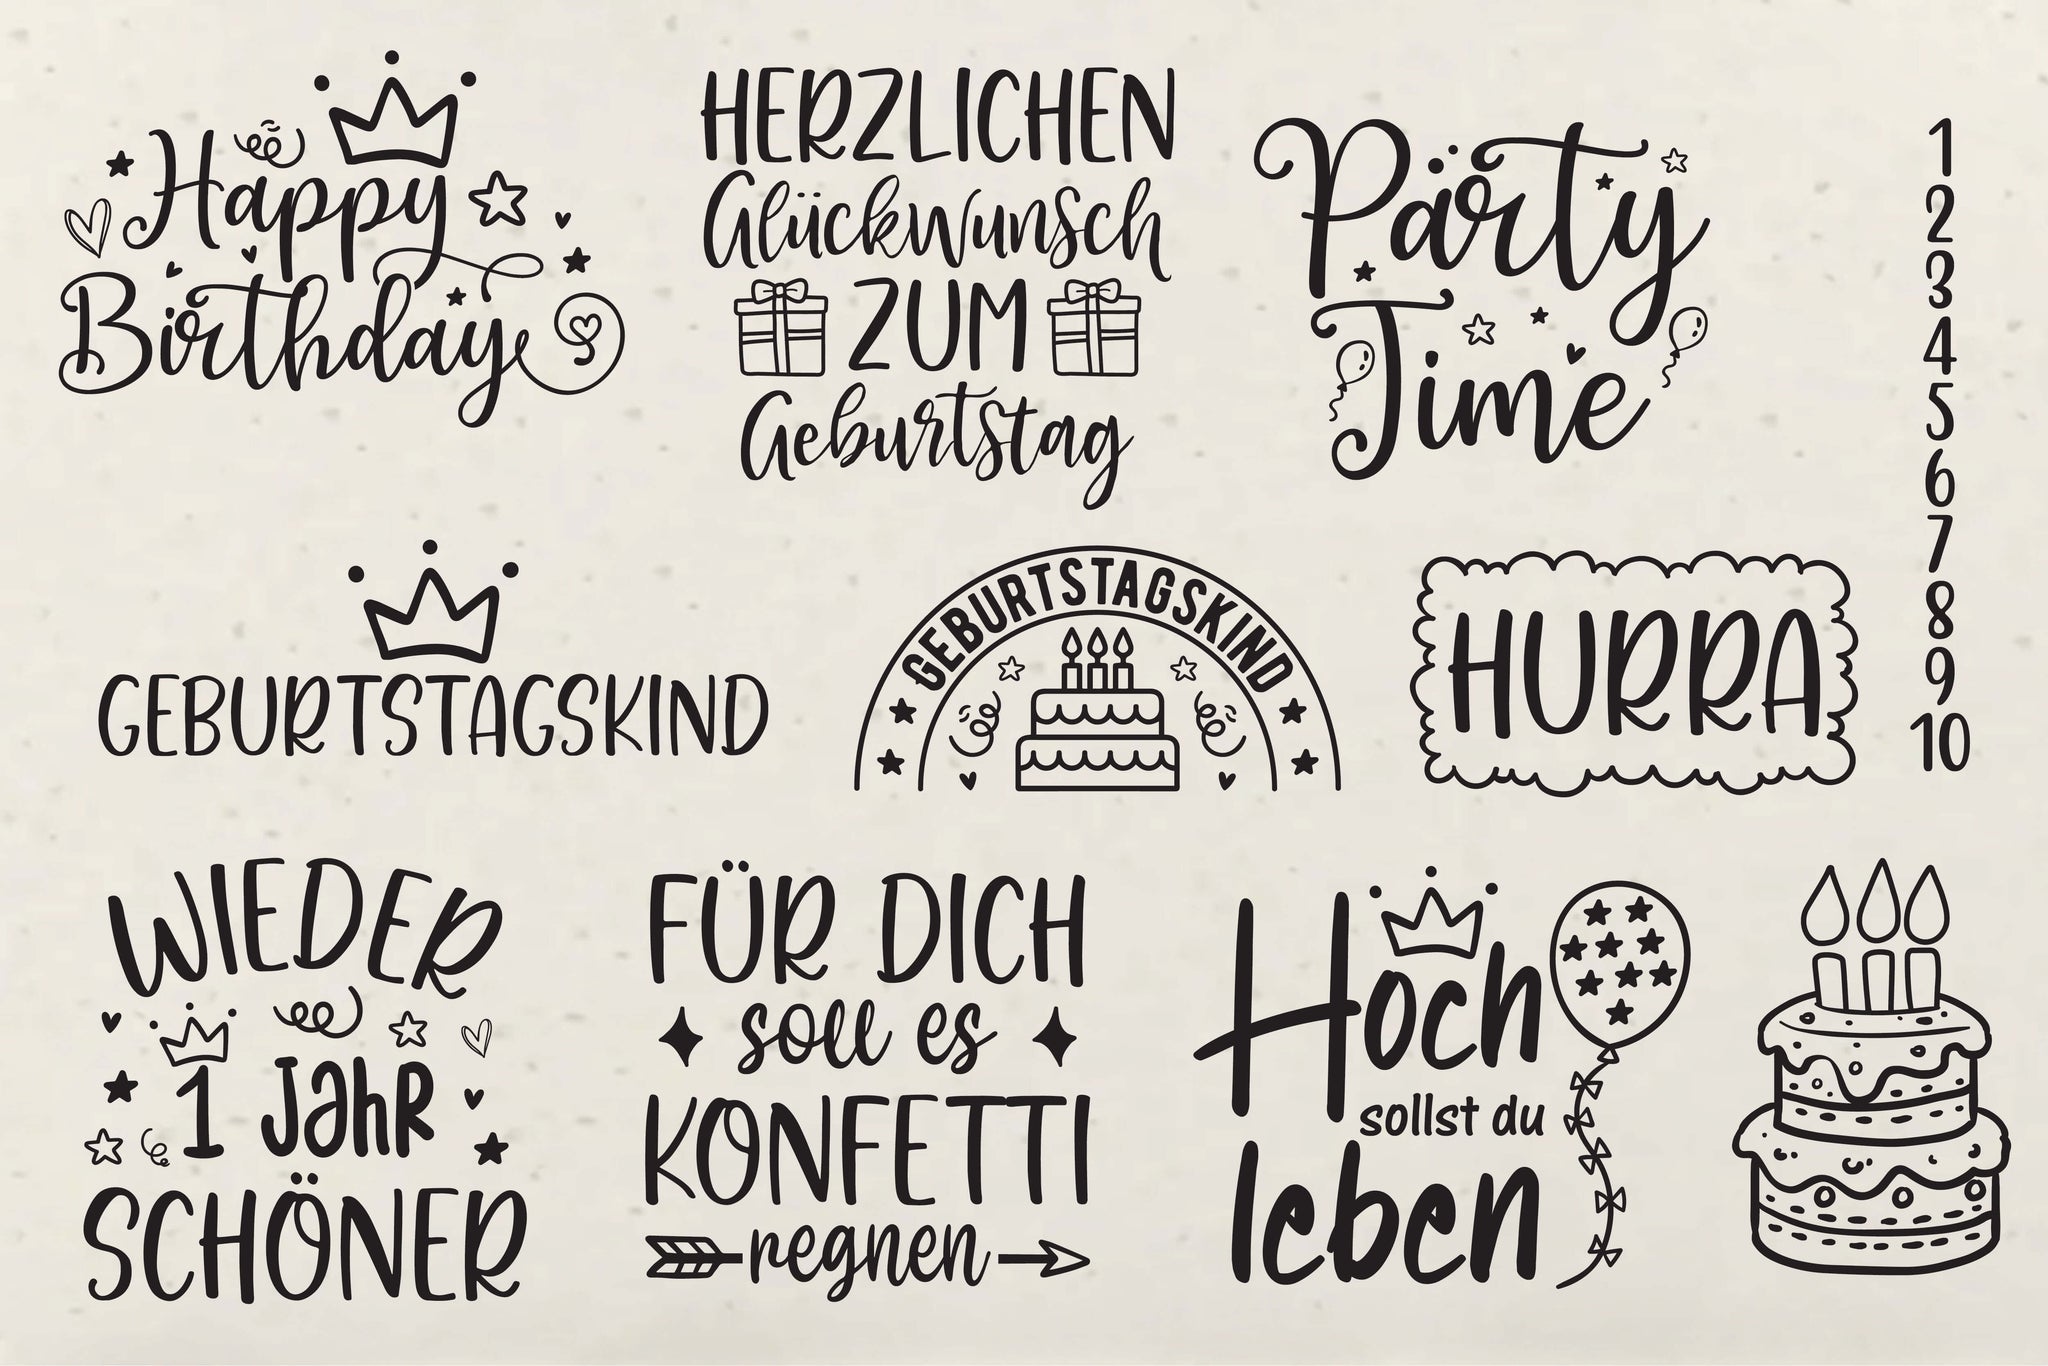 Happy
Birthday
HERZLICHEN
Glückwunsch
ZUM
Geburtstag
Party
Time
1
2
3
4
5
6
7
8
9
10
GEBURTSTAGSKIND
GEBURTSTAGSKIND
HURRA
WIEDER
1 JahR
SCHÖNER
FÜR DICH
soll es
KONFETTI
regnen
Hoch
sollst du
leben